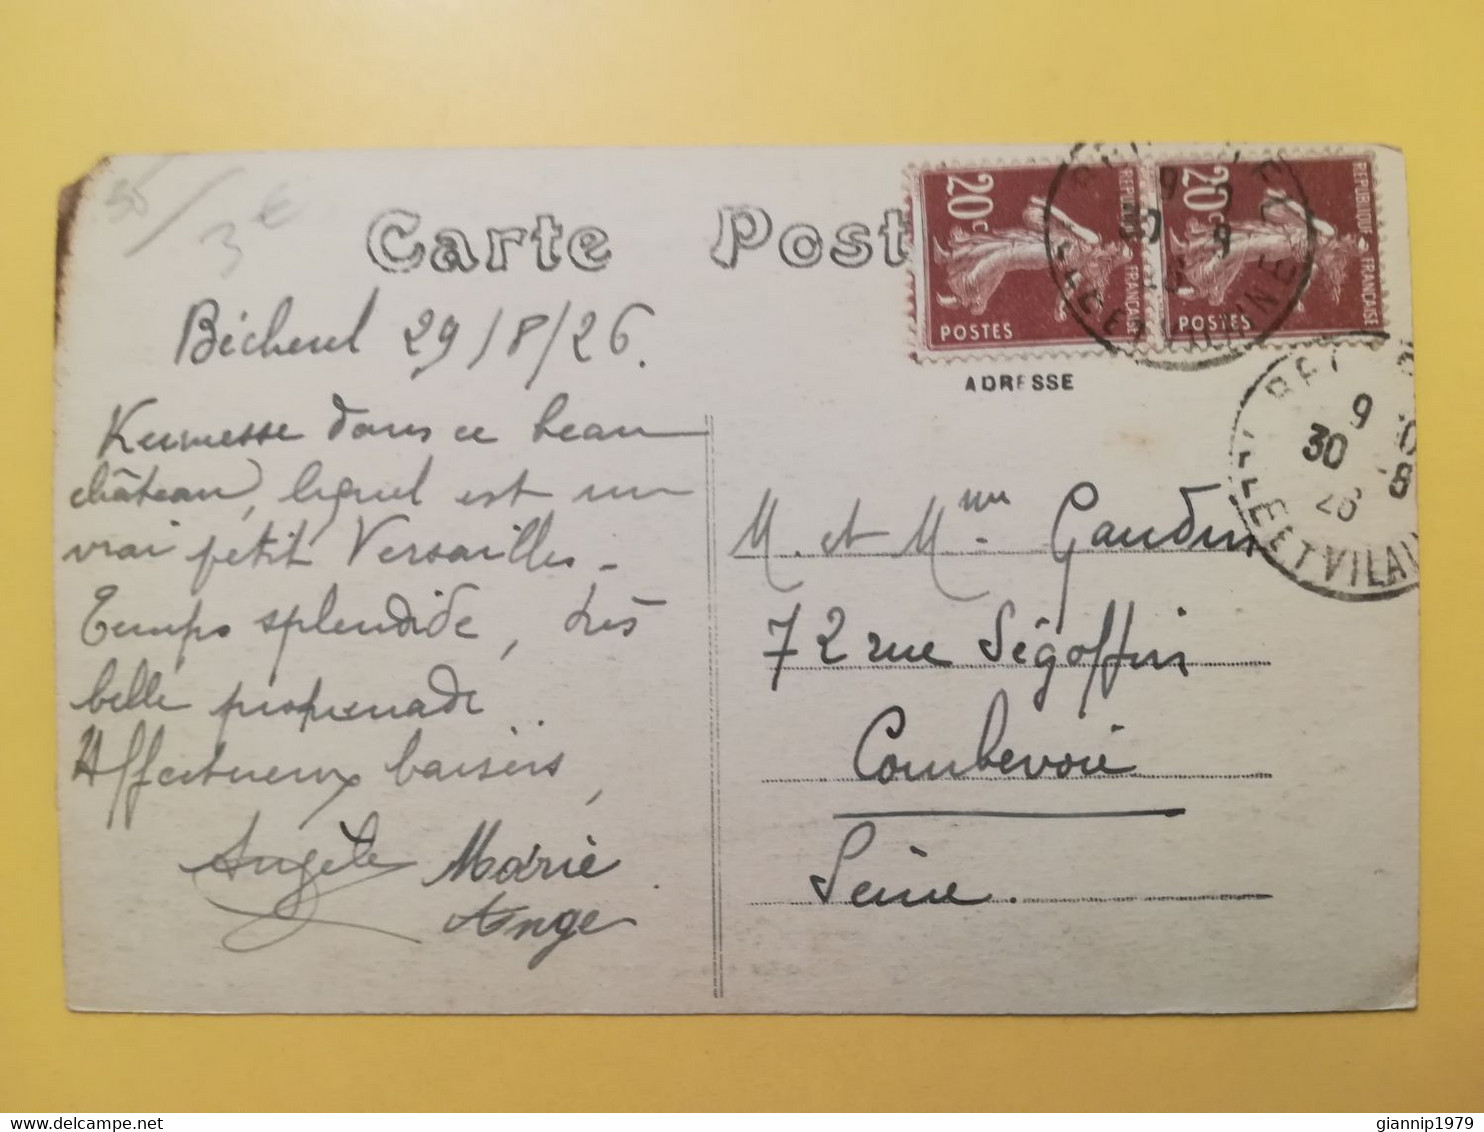 50/
3 €
Carte Post
20c
POSTES
REPUBLIQUE FRANÇAISE
20c
POSTES
REPUBLIQUE FRANÇAISE
ADRESSE
9
30 8
26
ILLE ET VILAINE
Bécherel 29/8/26.
Kermesse dans ce beau
château, lequel est un
vrai petit Versailles -
Temps splendide, très
belle promenade
Affectueux baisers,
Angèle Marie
Ange
M. et Mme Gaudin
72 rue Ségoffin
Courbevoie
Seine.
giannip1979